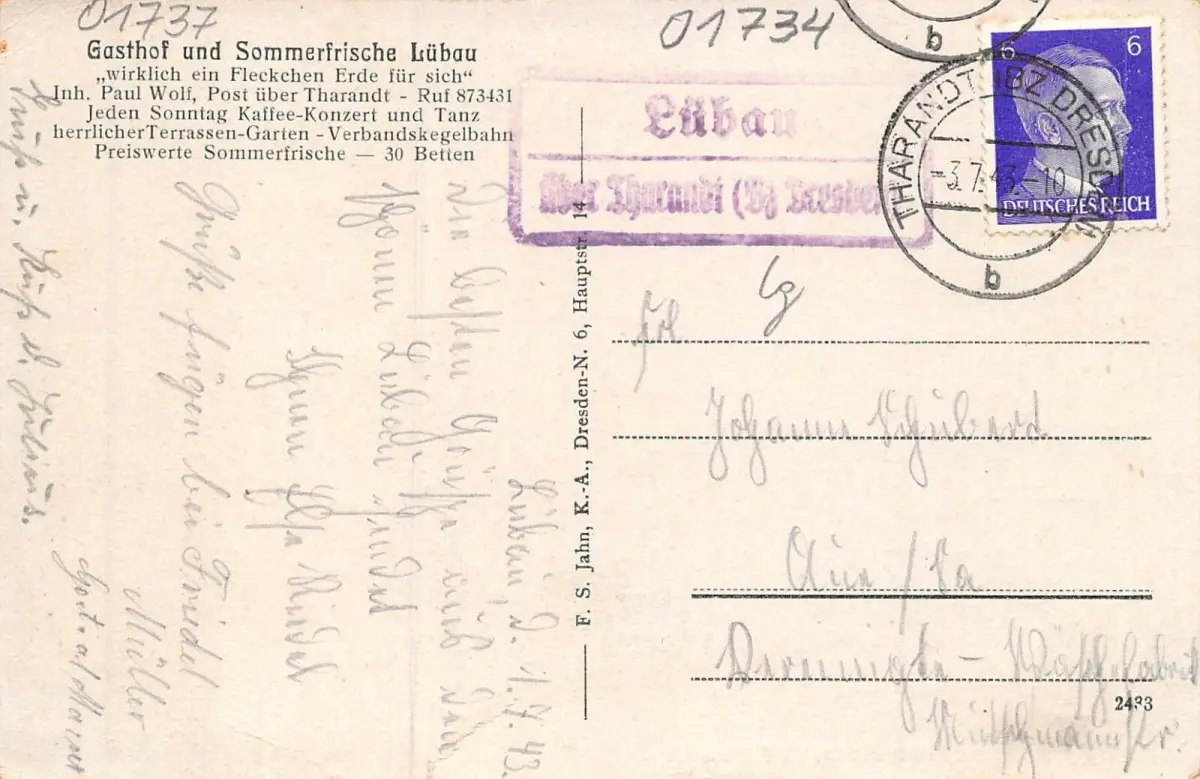 01737
01734
Gasthof und Sommerfrische Lübau
„wirklich ein Fleckchen Erde für sich“
Inh. Paul Wolf, Post über Tharandt - Ruf 873431
Jeden Sonntag Kaffee-Konzert und Tanz
herrlicher Terrassen-Garten - Verbandskegelbahn
Preiswerte Sommerfrische — 30 Betten
Lübau
über Tharandt (Bz Dresden
b
THARANDT (BZ DRESDEN
-3.7.43.-10
b
6 6
DEUTSCHES REICH
Lübau, d. 1.7.43.
Die besten Grüße aus dem
schönen Lübau sendet
Ihnen
Grüße fügen bei Friedel
Müller
Gruß u. Kuß d. Julius.
F. S. Jahn, K.-A., Dresden-N. 6, Hauptstr. 14
Frl
Johanne Schubert
Aue / Sa
Vereinigte - Wäschefabrik
2433